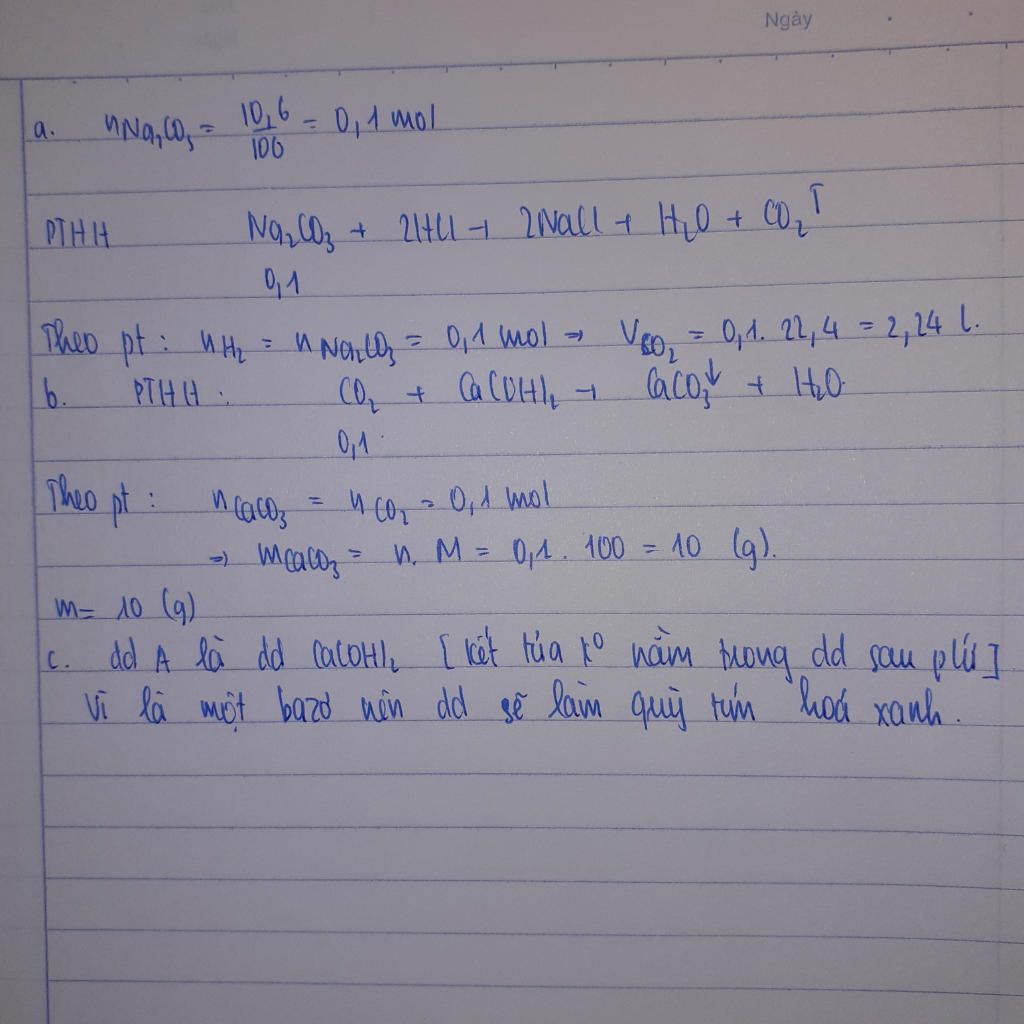 Ngày
a. nNa₂CO₃ = 10,6/106 = 0,1 mol
PTHH Na₂CO₃ + 2HCl → 2NaCl + H₂O + CO₂↑
0,1
Theo pt : nH₂ = nNa₂CO₃ = 0,1 mol ⇒ VCO₂ = 0,1. 22,4 = 2,24 l.
b. PTHH : CO₂ + Ca(OH)₂ → CaCO₃↓ + H₂O.
0,1.
Theo pt : nCaCO₃ = nCO₂ = 0,1 mol
⇒ mCaCO₃ = n. M = 0,1. 100 = 10 (g).
m = 10 (g)
c. dd A là dd Ca(OH)₂ [kết tủa k⁰ nằm trong dd sau pứ]
Vì là một bazơ nên dd sẽ làm quỳ tím hoá xanh.